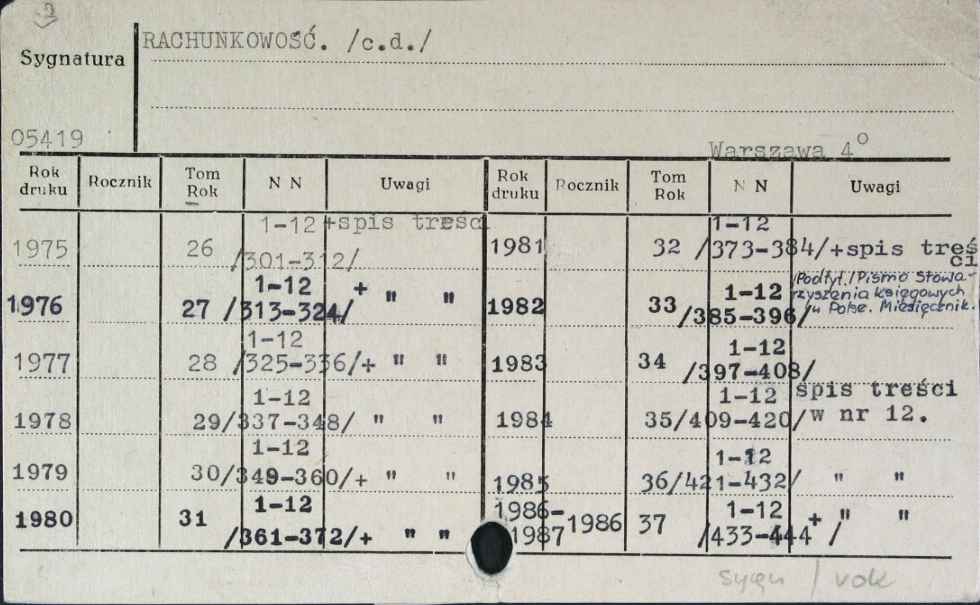 2
RACHUNKOWOŚĆ. /c.d./
Sygnatura
05419
Warszawa 4°
Rok druku Rocznik Tom Rok N N Uwagi Rok druku Rocznik Tom Rok N N Uwagi
1975 26 1-12 /301-312/ +spis treści
1976 27 1-12 /313-324/ + " "
1977 28 1-12 /325-336/+ " "
1978 29 1-12 /337-348/ " "
1979 30 1-12 /349-360/+ " "
1980 31 1-12 /361-372/+ " "
1981 32 1-12 /373-384/+spis treści
1982 33 1-12 /385-396/ /Podtyt./Pismo Stowa-
rzyszenia księgowych
w Polsce. Miesięcznik.
1983 34 1-12 /397-408/
1984 35 1-12 /409-420/ spis treści
w nr 12.
1985 36 1-12 /421-432/ " "
1986-1987 1986 37 1-12 /433-444 / + " "
sygn / vok